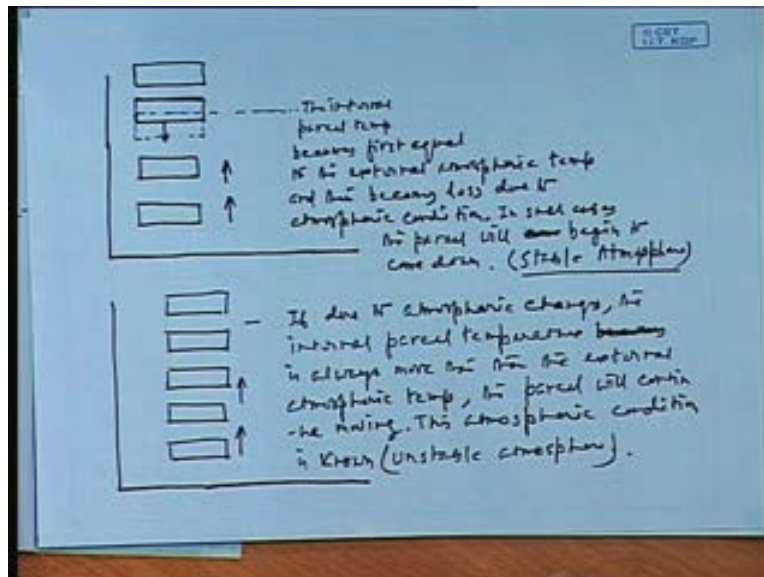 © CET
I.I.T. KGP
The internal
parcel temp
becomes first equal
to the external atmospheric temp
and then becomes less due to
atmospheric condition. In such cases
the parcel will begin to
come down. (Stable Atmosphere)
— If due to atmospheric changes, the
internal parcel temperature becomes
is always more than the external
atmospheric temp, the parcel will contin
-ue moving. This atmospheric condition
is known (unstable atmosphere).